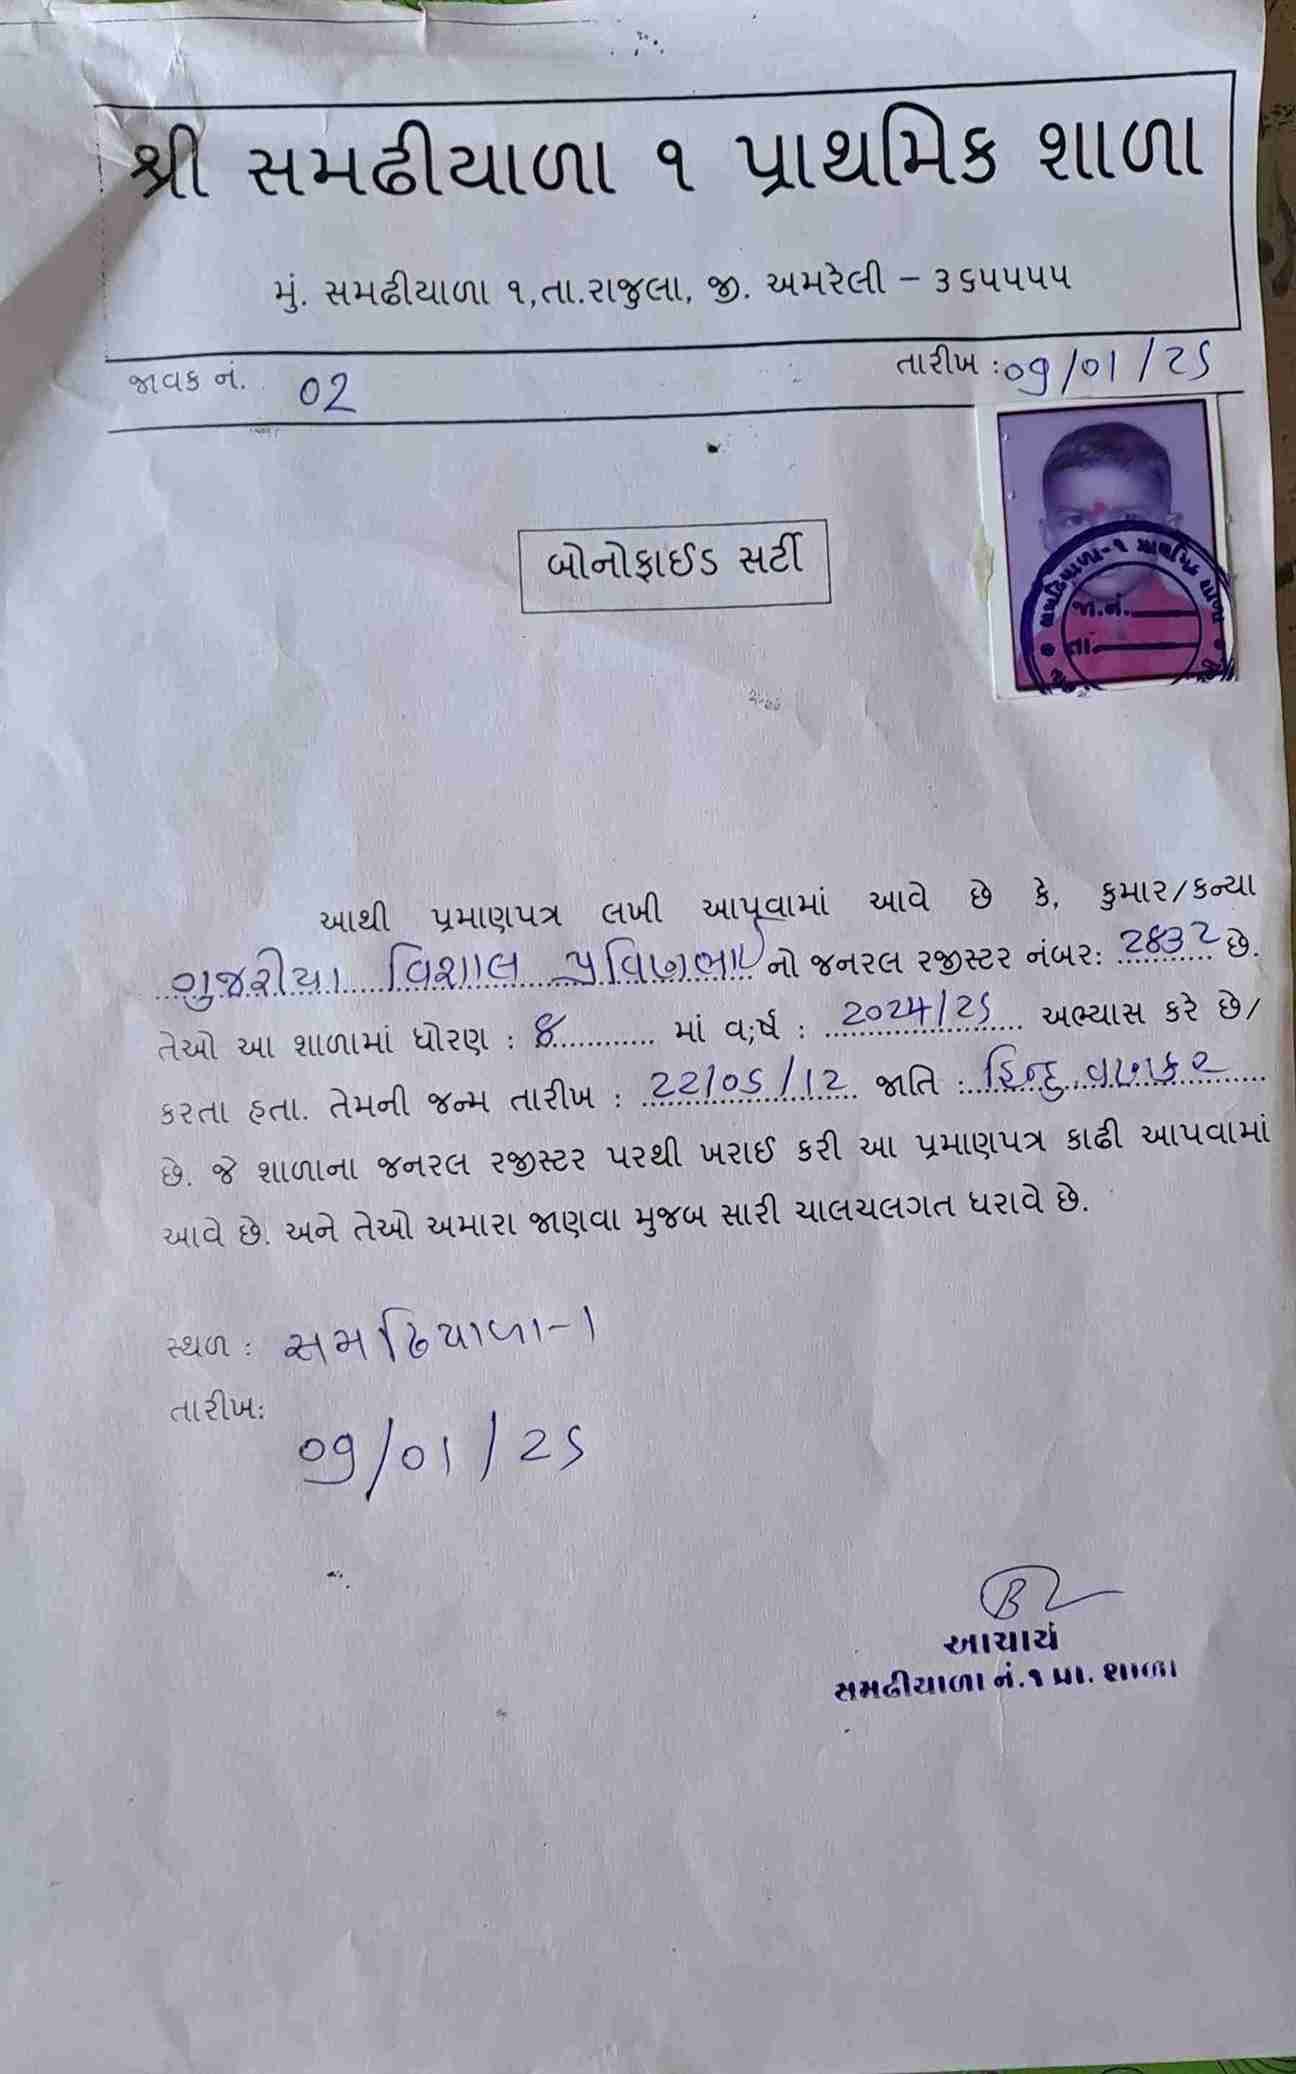 શ્રી સમઢીયાળા ૧ પ્રાથમિક શાળા
મું. સમઢીયાળા ૧,તા.રાજુલા, જી. અમરેલી – ૩૬૫૫૫૫
જાવક નં. 02
તારીખ :09/01/25
બોનોફાઈડ સર્ટી
જા.નં.
તા.
આથી પ્રમાણપત્ર લખી આપવામાં આવે છે કે, કુમાર/કન્યા
ગુજરીયા વિશાલ પ્રવિણભાઈ નો જનરલ રજીસ્ટર નંબર: 2832 છે.
તેઓ આ શાળામાં ધોરણ : 8 માં વ;ર્ષ : 2024/25 અભ્યાસ કરે છે/
કરતા હતા. તેમની જન્મ તારીખ : 22/05/12 જાતિ : હિન્દુ વણકર
છે. જે શાળાના જનરલ રજીસ્ટર પરથી ખરાઈ કરી આ પ્રમાણપત્ર કાઢી આપવામાં
આવે છે. અને તેઓ અમારા જાણવા મુજબ સારી ચાલચલગત ધરાવે છે.
સ્થળ : સમઢિયાળા-1
તારીખ:
09/01/25
આચાર્ય
સમઢીયાળા નં.૧ પ્રા. શાળા